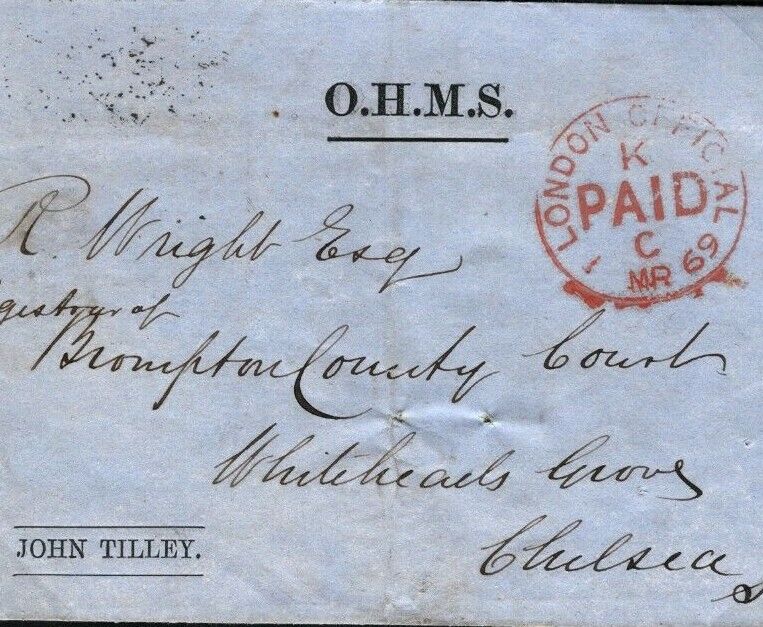 O.H.M.S.
LONDON OFFICIAL
K
PAID
C
1 MR 69
R. Wright Esq
gistrar of
Brompton County Court
Whiteheads Grove
Chelsea
JOHN TILLEY.